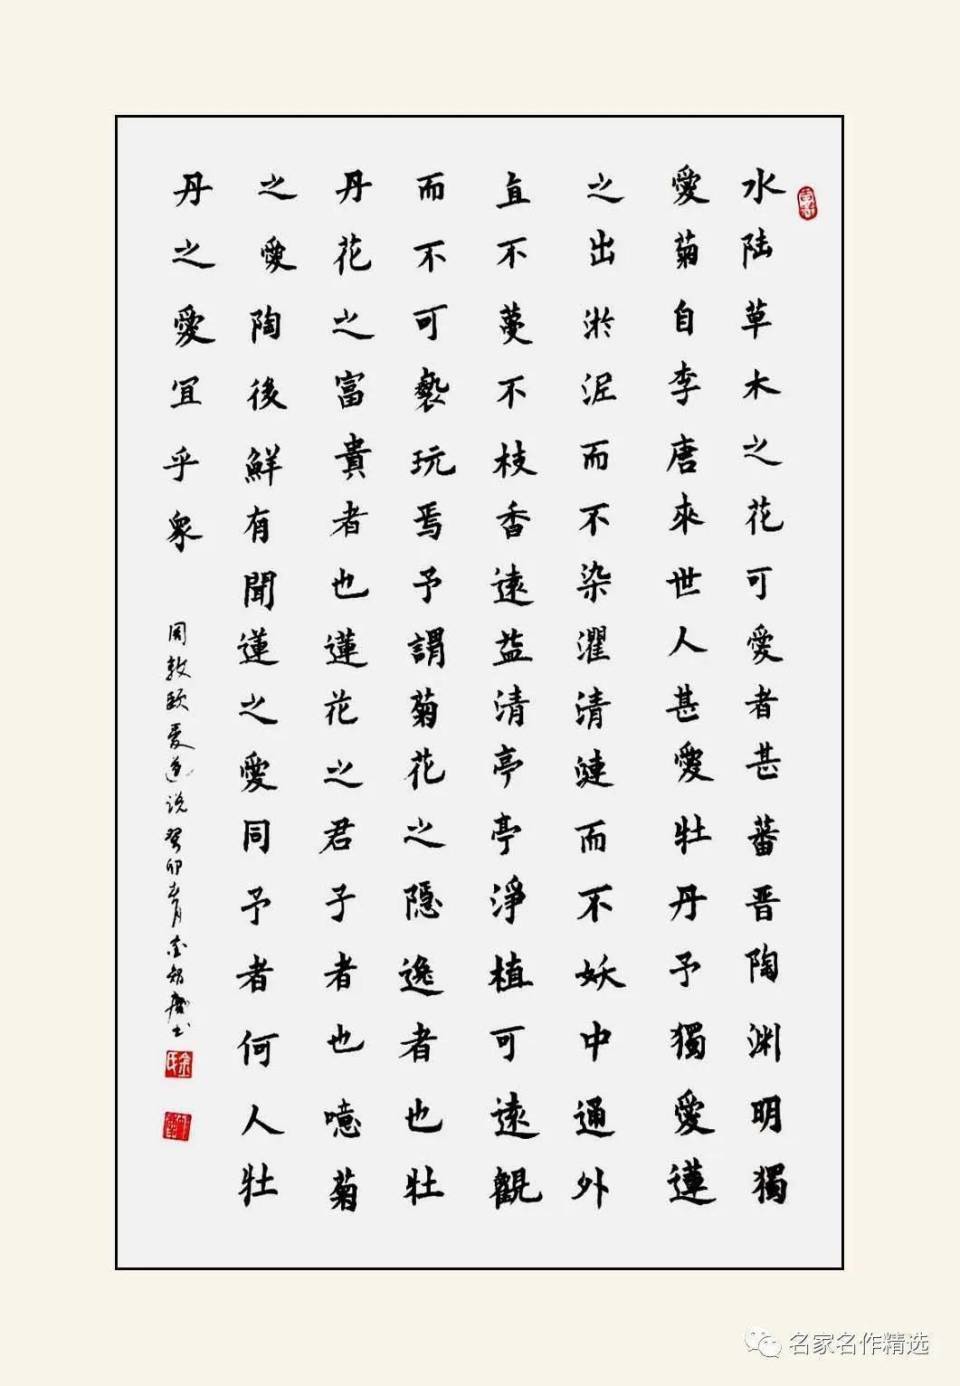 水陆草木之花可愛者甚蕃晋陶渊明獨
愛菊自李唐來世人甚愛牡丹予獨愛蓮
之出淤泥而不染濯清漣而不妖中通外
直不蔓不枝香遠益清亭亭淨植可遠觀
而不可褻玩焉予謂菊花之隐逸者也牡
丹花之富貴者也蓮花之君子者也噫菊
之愛陶後鮮有聞蓮之愛同予者何人牡
丹之愛宜乎衆
周敦颐爱莲说癸卯春月
名家名作精选